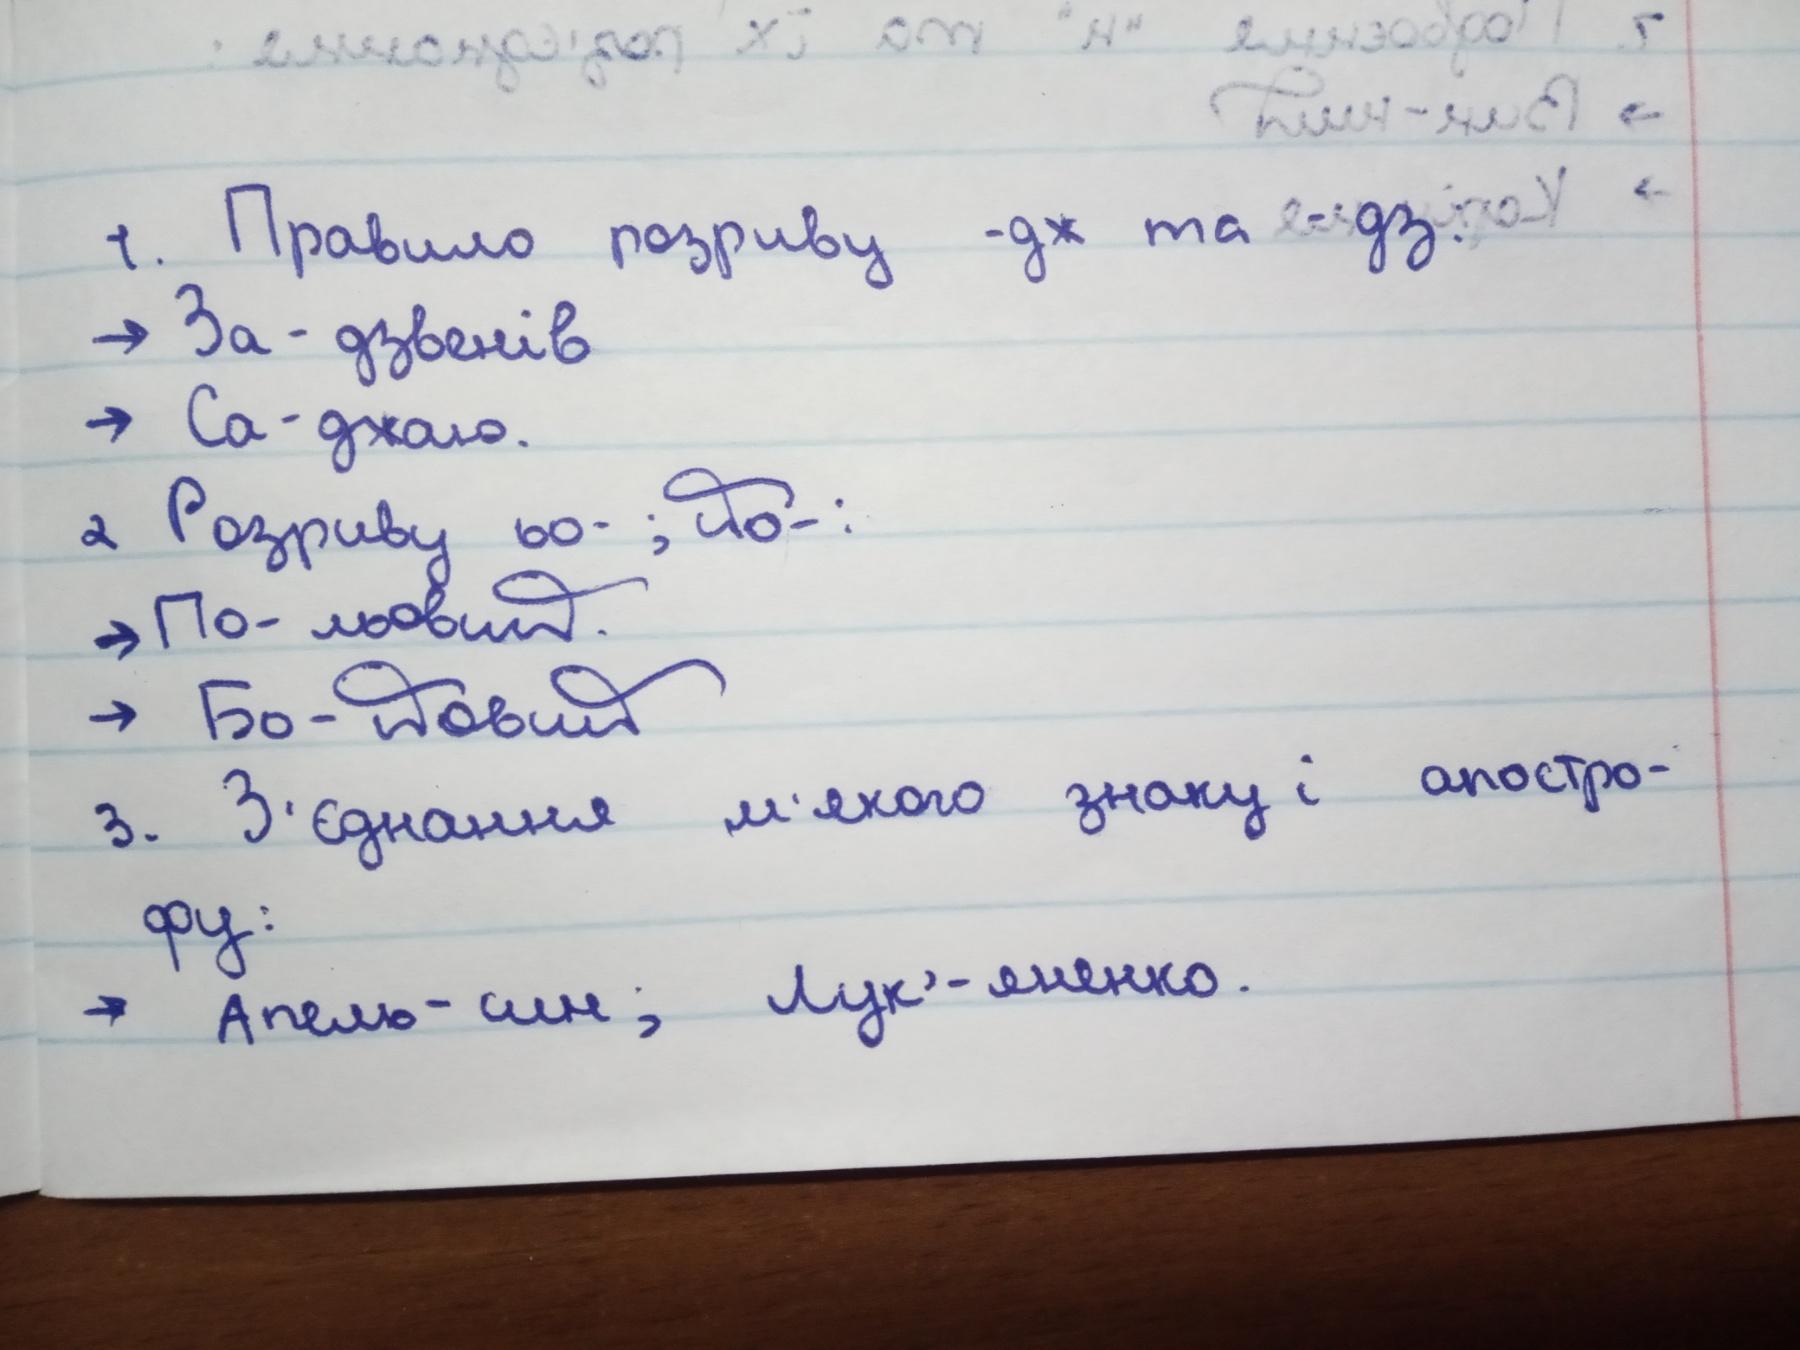 1. Правило розриву -дж та -дз:
→ За-дзвенів
→ Са-джаю.
2 Розриву ьо-; йо-:
→ По-льовий.
→ Бо-йовий
3. З'єднання м'якого знаку і апостро-
фу:
→ Апель-син; Лук'-яненко.